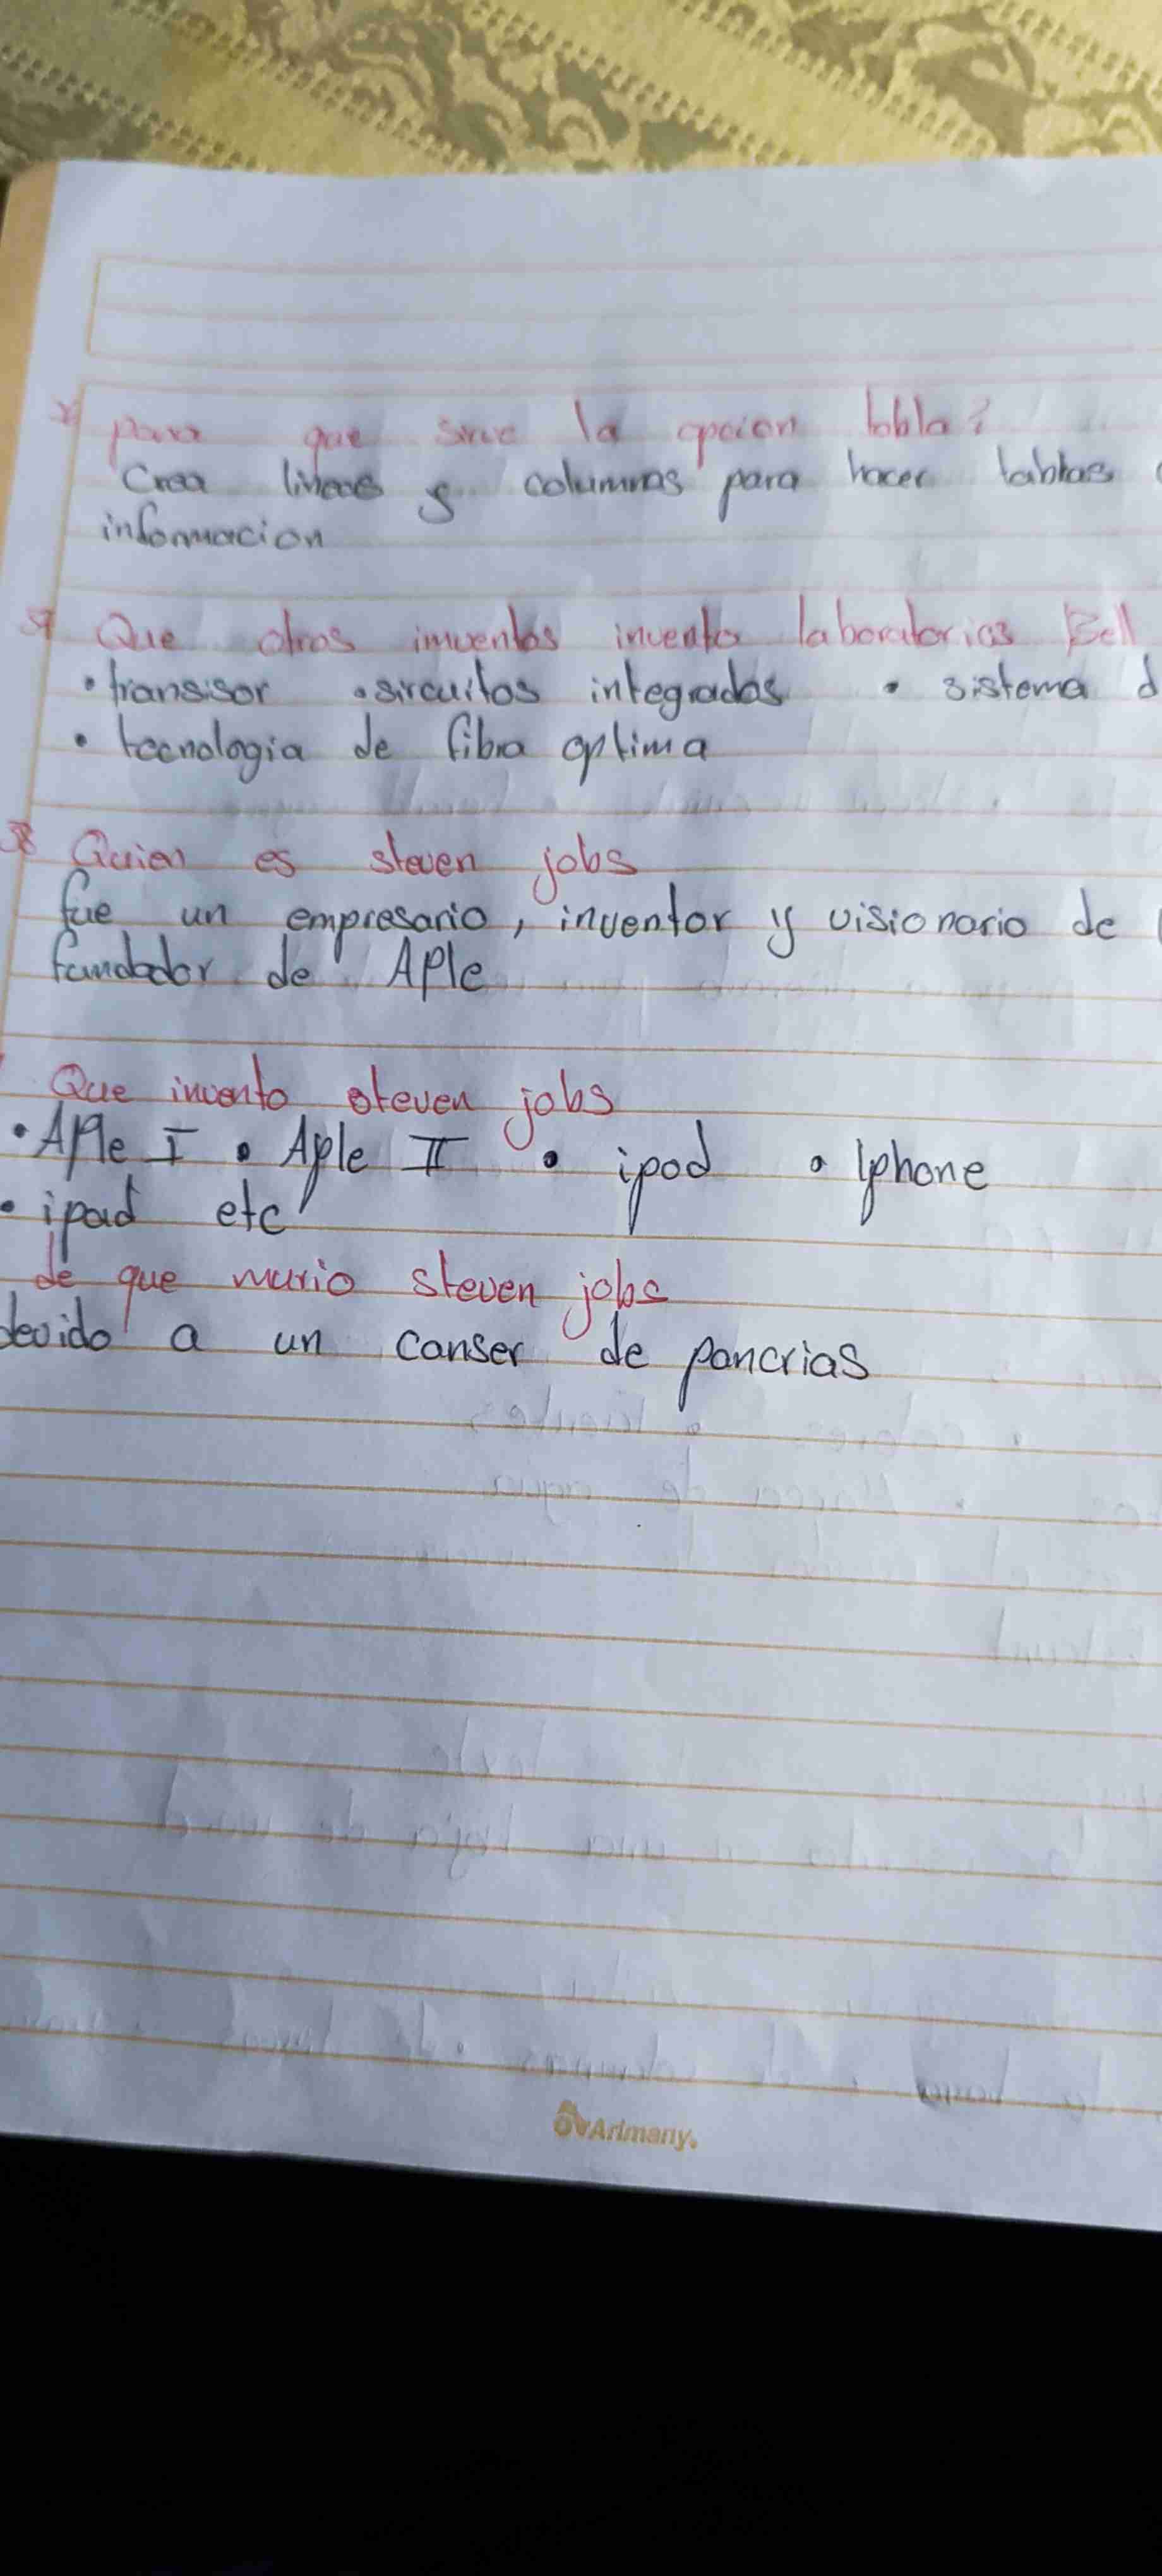 para que sirve la opcion tabla?
Crea lineas y columnas para hacer tablas
informacion
Que otros imventos invento laboratorios Bell
• transisor • sircuitos integrados • sistema d
• tecnologia de fibra optima
38 Quien es steven jobs
fue un empresario, inventor y visionario de
fundador de APle
Que invento steven jobs
• APle I • Aple II • ipod • Iphone
• ipad etc
de que murio steven jobs
devido a un canser de pancrias
Arimany.